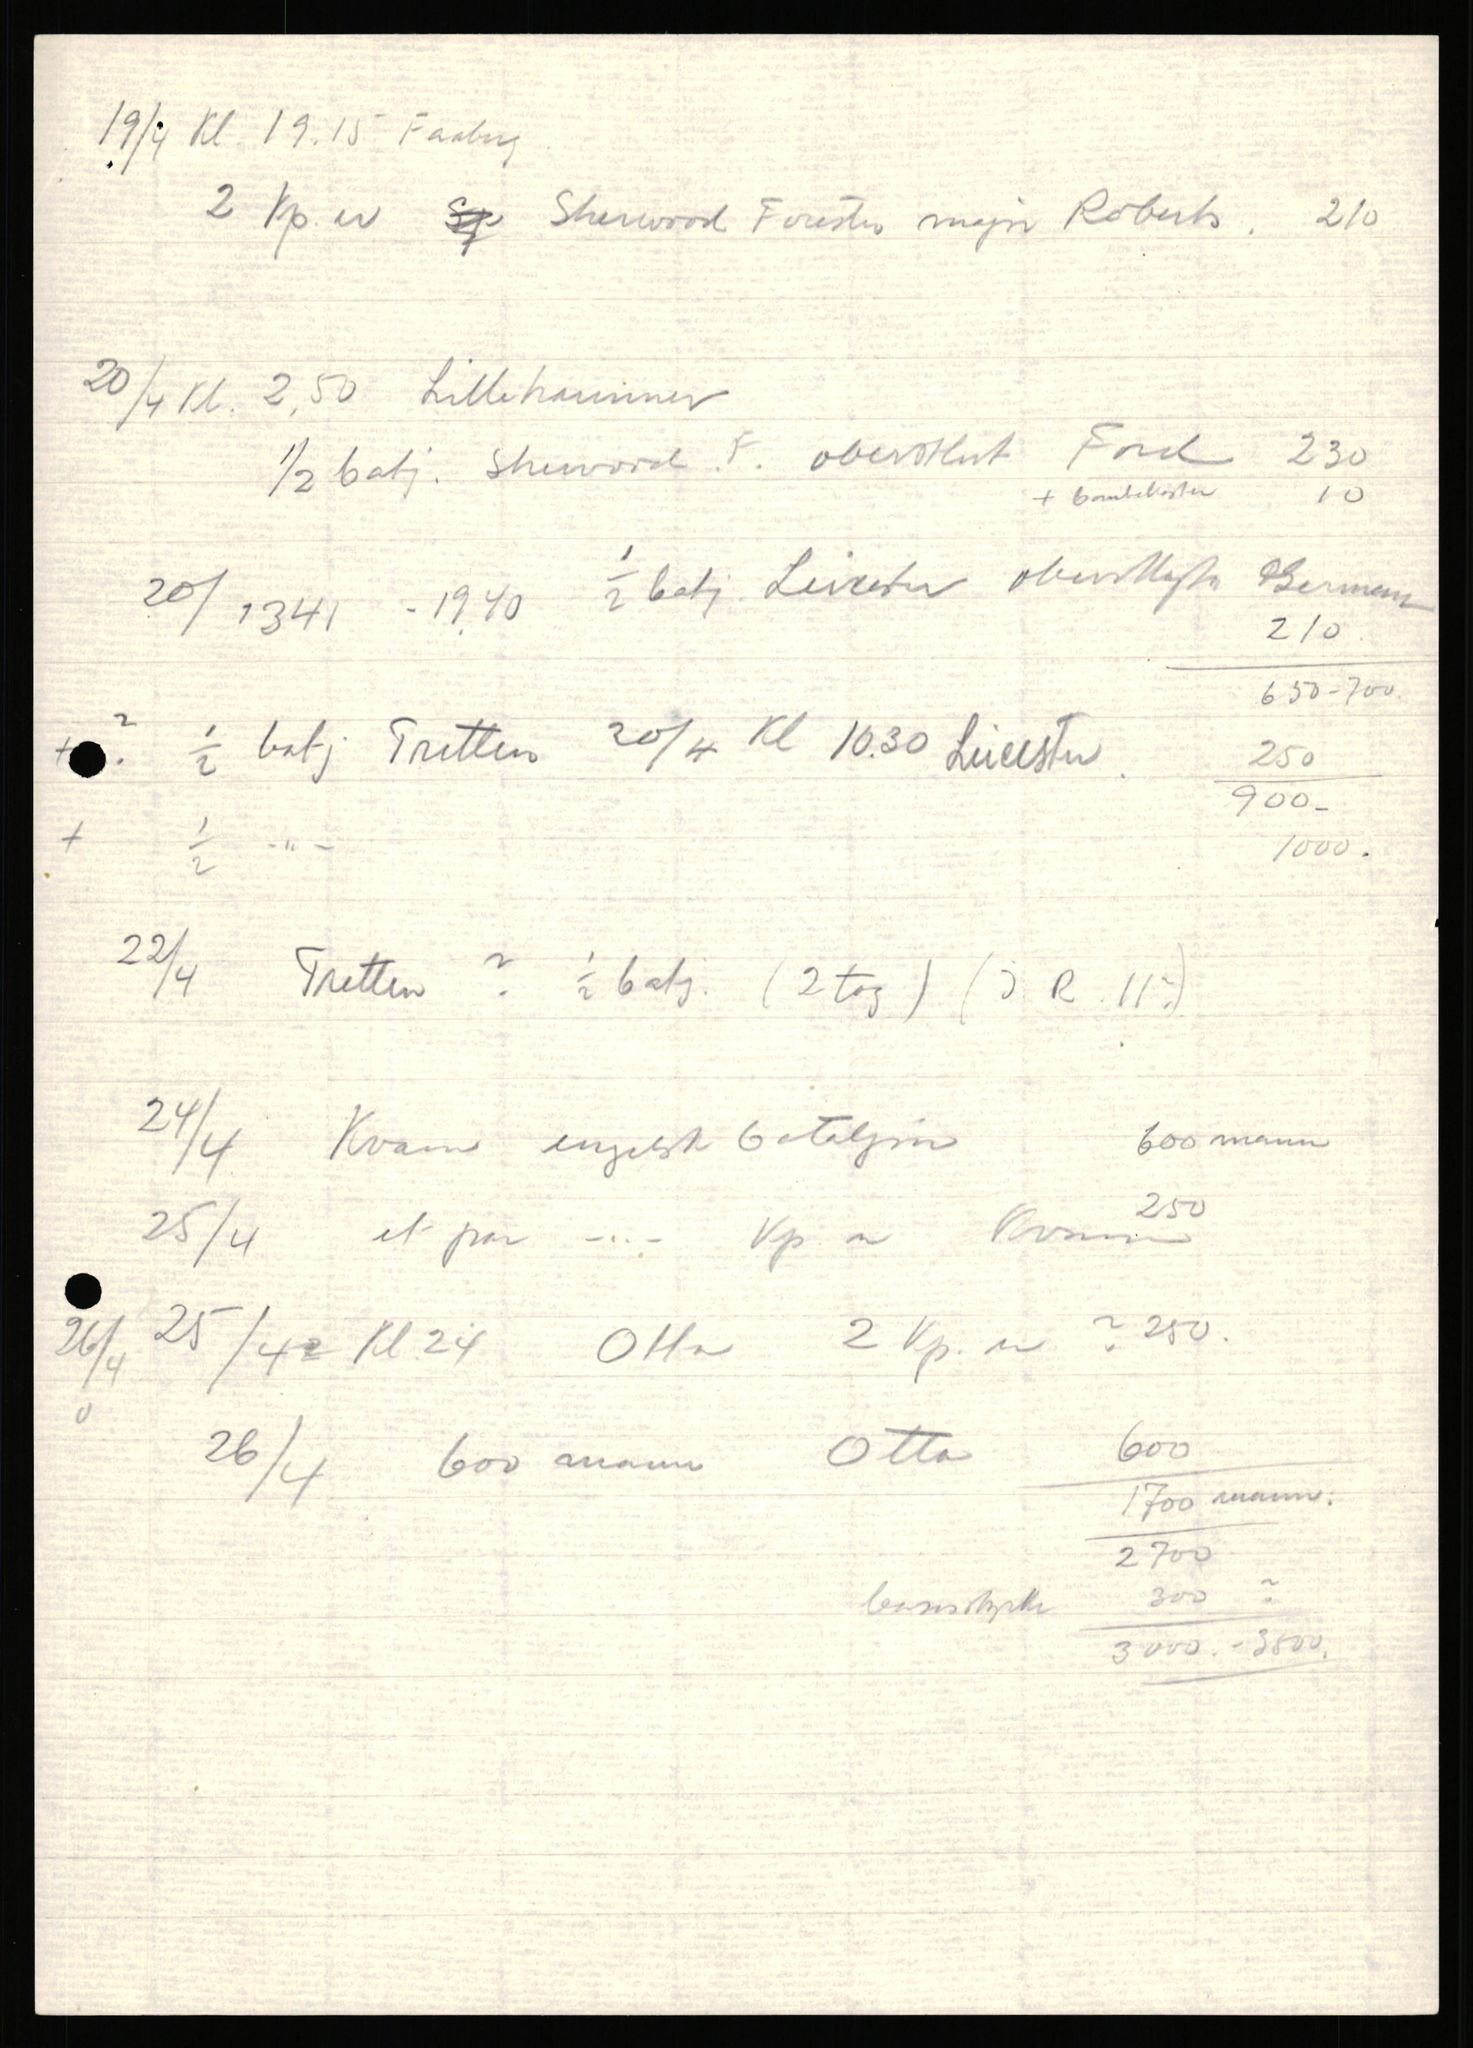 19/4 Kl. 19.15 Faaberg.
2 Kp.er Sherwood Forester major Roberts. 210
20/4 Kl. 2,50 Lillehammer
1/2 batj. Sherwood F. oberstløt Ford 230
+ bombekaster 10
20/ 1341 - 19.40 1/2 batj. Leicester German
210.
650-700.
+ ? 1/2 batj Tretten 20/4 Kl 10.30 Leicester. 250
900-
+ 1/2 -"- 1000.
22/4 Tretten ? 1/2 batj. (2 tog) (J.R. 11?)
24/4 Kvam engelsk bataljon 600 mann
25/4 et par -"- Kp.er Kvam 250
26/4 25/4 Kl. 24 Otta 2 Kp.er ? 250.
26/4 600 mann Otta 600
1700 mann.
2700
basisstyrke 300 ?
3000. - 3500.